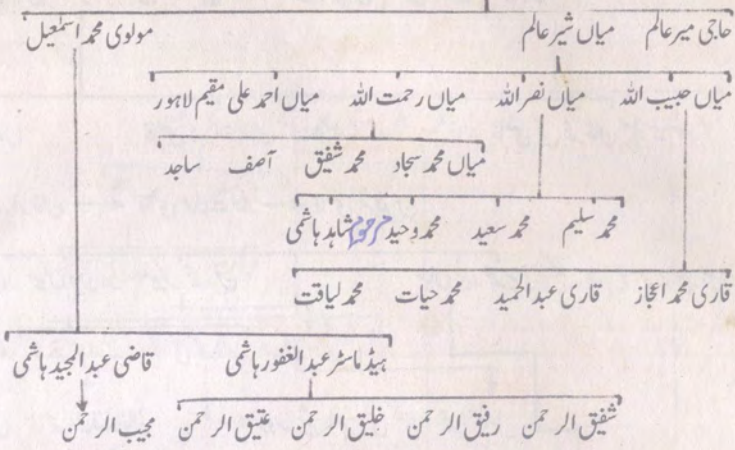 حاجی میر عالم میاں شیر عالم مولوی محمد اسمٰعیل
میاں حبیب اللہ میاں نصر اللہ میاں رحمت اللہ میاں احمد علی مقیم لاہور
میاں محمد سجاد محمد شفیق آصف ساجد
محمد سلیم محمد سعید محمد وحید مرحوم شاہد ہاشمی
قاری محمد اعجاز قاری عبدالحمید محمد حیات محمد لیاقت
ہیڈ ماسٹر عبدالغفور ہاشمی قاضی عبدالمجید ہاشمی
شفیق الرحمن رفیق الرحمن خلیق الرحمن عتیق الرحمن مجیب الرحمن